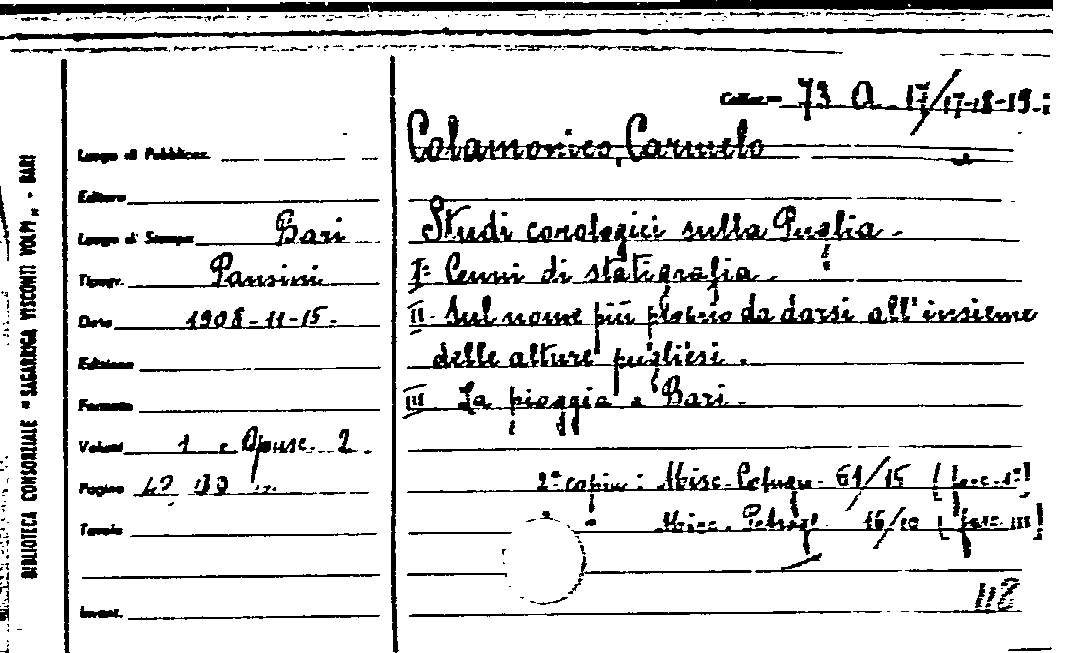 BIBLIOTECA CONSORZIALE "SAGARRIGA VISCONTI VOLPI" - BARI
Colloc. 73 A 17/17-18-19
Colamonico, Carmelo
Luogo di Pubblicaz.
Editore
Luogo di Stampa Bari
Studi corologici sulla Puglia.
Tipogr. Pansini
I= Cenni di statigrafia.
Data 1908-11-15-
II- Sul nome più proprio da darsi all'insieme
Edizione
delle alture pugliesi.
Formato
III La pioggia a Bari-
Volumi 1 e Opusc. 2.
Pagine
2ª copia: Misc. 61/15 [fasc. 1°]
Misc. 16/10 [fasc. III]
Tavole
Invent.
118